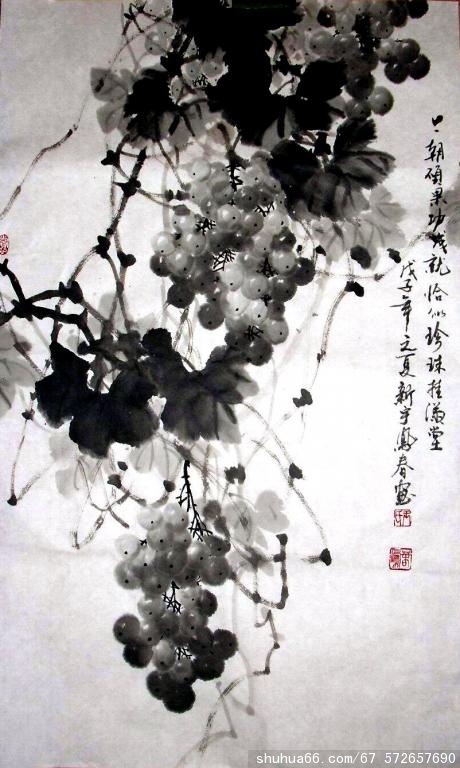 一朝硕果功成就恰似珍珠挂满堂
戊子年之夏新宇凤春画
shuhua66.com/67 572657690